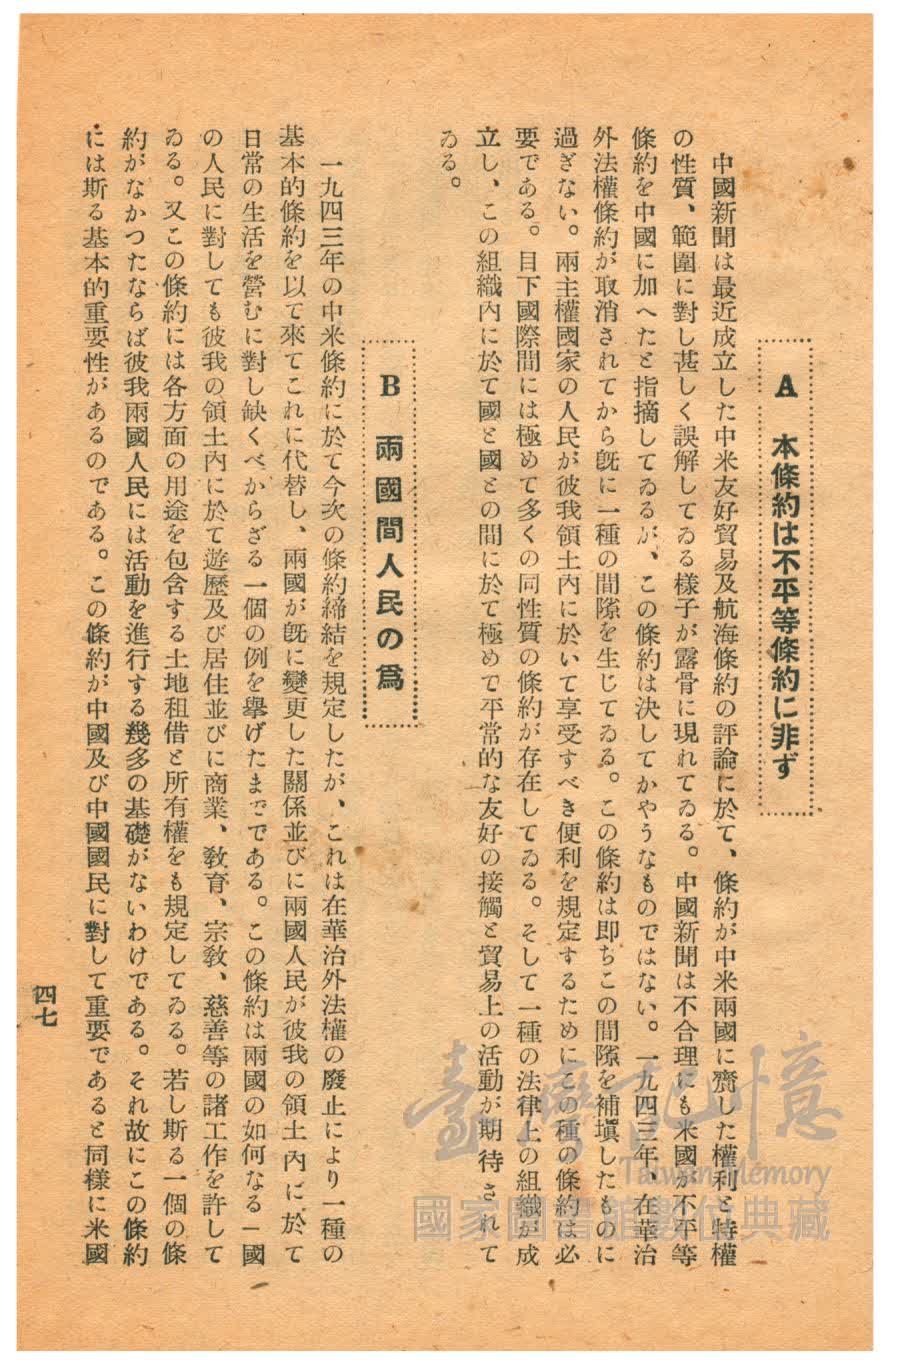 A 本條約は不平等條約に非ず
中國新聞は最近成立した中米友好貿易及航海條約の評論に於て、條約が中米兩國に齎した權利と特權
の性質、範圍に對し甚しく誤解してゐる樣子が露骨に現れてゐる。中國新聞は不合理にも米國が不平等
條約を中國に加へたと指摘してゐるが、この條約は決してかやうなものではない。一九四三年、在華治
外法權條約が取消されてから旣に一種の間隙を生じてゐる。この條約は卽ちこの間隙を補塡したものに
過ぎない。兩主權國家の人民が彼我領土內に於いて享受すべき便利を規定するためにこの種の條約は必
要である。目下國際間には極めて多くの同性質の條約が存在してゐる。そして一種の法律上の組織が成
立し、この組織內に於て國と國との間に於て極めて平常的な友好の接觸と貿易上の活動が期待されて
ゐる。
B 兩國間人民の爲
一九四三年の中米條約に於て今次の條約締結を規定したが、これは在華治外法權の廢止により一種の
基本的條約を以て來てこれに代替し、兩國が旣に變更した關係並びに兩國人民が彼我の領土內に於て
日常の生活を營むに對し缺くべからざる一個の例を擧げたまでである。この條約は兩國の如何なる一國
の人民に對しても彼我の領土內に於て遊歷及び居住並びに商業、敎育、宗敎、慈善等の諸工作を許して
ゐる。又この條約には各方面の用途を包含する土地租借と所有權をも規定してゐる。若し斯る一個の條
約がなかつたならば彼我兩國人民には活動を進行する幾多の基礎がないわけである。それ故にこの條約
には斯る基本的重要性があるのである。この條約が中國及び中國國民に對して重要であると同樣に米國
四七
臺灣記憶
Taiwan Memory
國家圖書館數位典藏